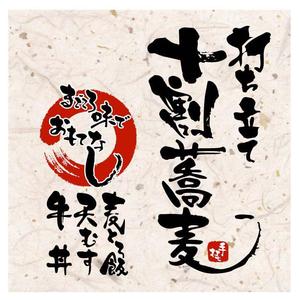 打ち立て
十割蕎麦
手打ち
まごころ味で
おもてなし
麦とろ飯
天むす
牛丼